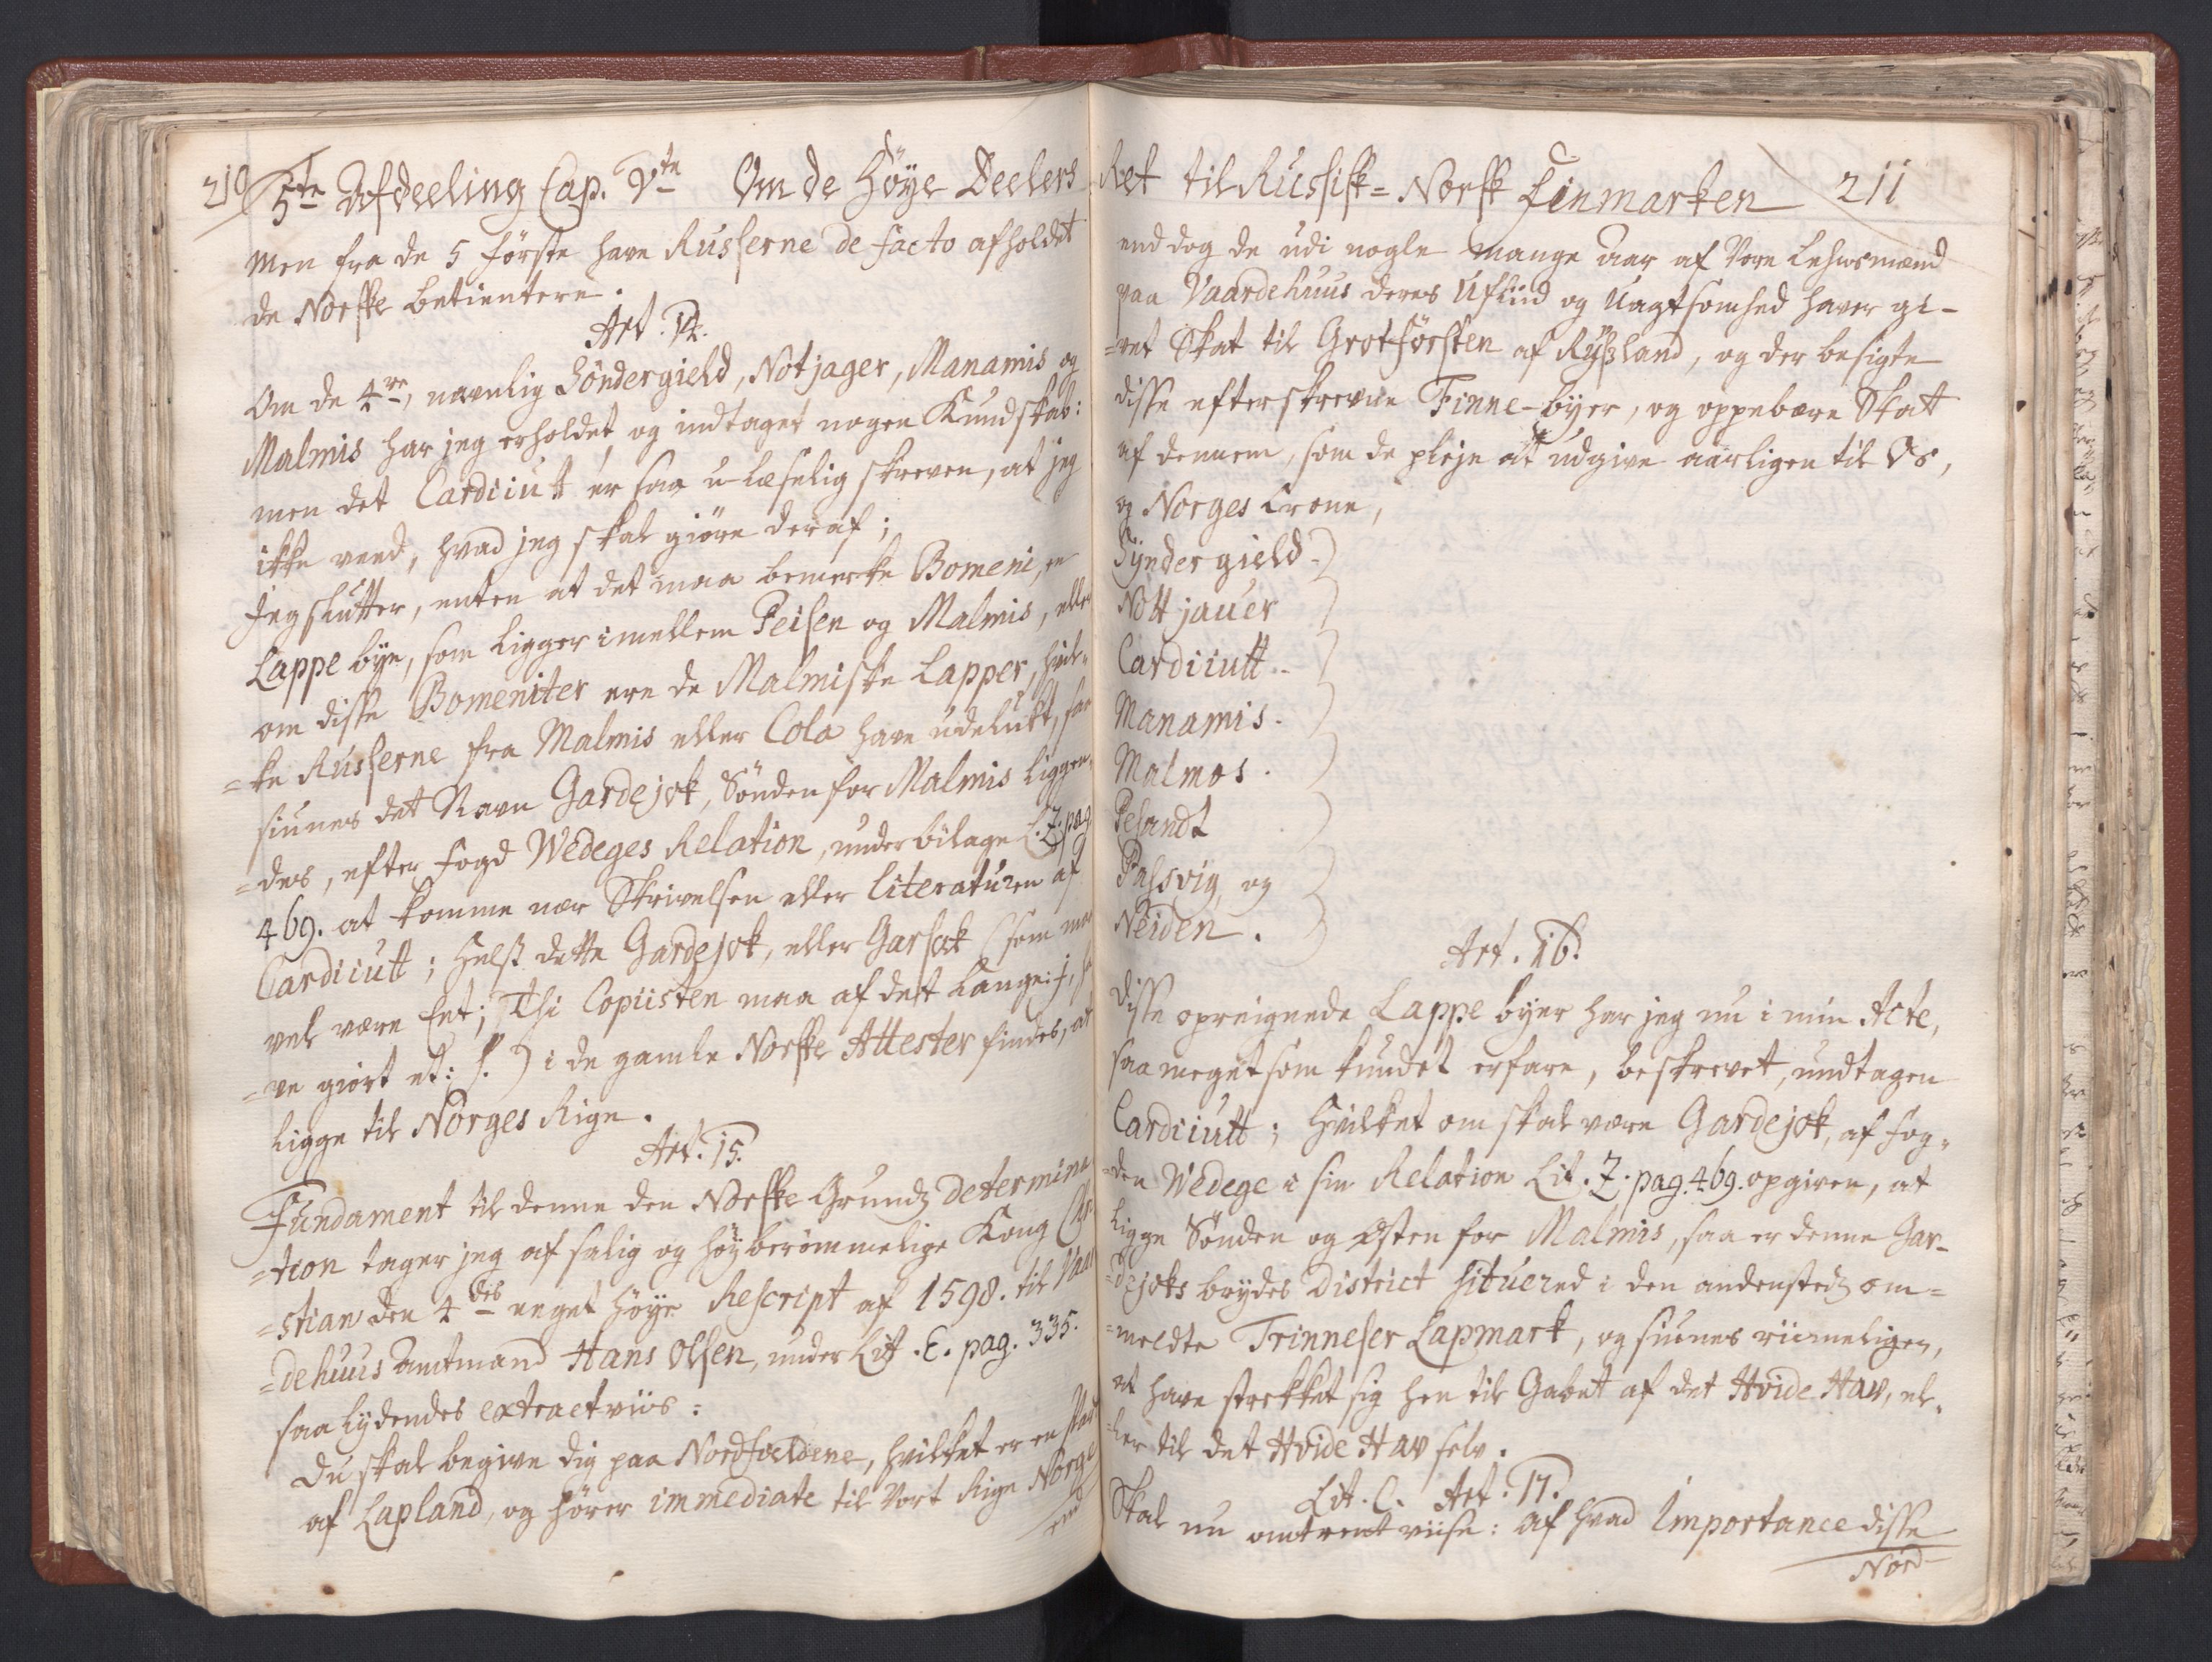 210 5te Afdeeling Cap. Vte Om de Höÿe Deelers
Men fra de 5 förste have Russerne de facto afholdet
de Norske betientere.
Art. 14.
Om de 4re, navnlig Söndergield, Notjager, Manamis og
Malmis har jeg erholdet og indtaget nogen Kundskab:
men det Cardiiutt er saa u-læselig skreven, at jeg
ikke veed, hvad jeg skal giöre deraf;
Jeg slutter, enten at det maa bemerke Bomeni, en
Lappe bÿe, som ligger imellem Peisen og Malmis, eller
om disse Bomeniter ere de Malmiske Lapper, hvil=
=ke Russerne fra Malmis eller Cola have udelukt, saa
siunes det Navn Gardejok, Sönden for Malmis liggen=
=des, efter Fogd Wedeges Relation, under bilage L. Z. pag.
469. at komme nær Skrivelsen eller literaturen af
Cardiiutt; Helst dette Gardejok, eller Garsok (som maa
vel være Eet; Thi Copiisten maa af det lange: j, ha
=ve giort et: s.) i de gamle Norske Attester findes, at
ligge til Norges Rige.
Art. 15.
Fundament til denne den Norske Grundz Determina
=tion tager jeg af salig og höÿberömmelige Kong Chri
=stian den 4des eeget höÿe Rescript af 1598. til Vaar
=dehuus Amtmand Hans Olsen, under Lit. E. pag. 335.
saa lÿdendes extractviis:
Du skal begive dig paa Nordfieldene, hvilket er en stad
af Lapland, og hörer immediate til Vort Rige Norge
end
Ret til Russisk=Norsk Finmarken 211
end dog de udi nogle mange Aar af Vore Lehnsmænd
paa Vaardehuus deres Uflüd og Uagtsomhed haver gi-
=vet Skat til Grotförsten af Rÿsland, og der besigte
disse efterskrevne Finne-bÿer, og oppebære Skatt
af dennem, som de pleje at udgive aarligen til Os,
og Norges Crone,
Sÿndergield.
Nott jauer
Cardiiutt.
Manamis.
Malmos.
Pesandt
Passvig, og
Neiden.
Art. 16.
Disse opreignede Lappe bÿer har jeg nu i min Acte,
saa meget som kundet erfare, beskrevet, undtagen
Cardiiutt; Hvilket om skal være Gardejok, af Fog=
=den Wedege i sin Relation Lit. Z. pag. 469. opgiven, at
ligge Sönden og Östen for Malmis, saa er denne Gar-
=dejoks brÿdes District situered i den andenstedz om=
=meldte Trinneser Lapmark, og siunes riimeligen,
at have strekket sig hen til Gabet af det Hvide Hav, el=
=ler til det Hvide Hav selv.
Lit. C. Art. 17.
Skal nu omtrent viise: Af hvad Importance disse
Nord-